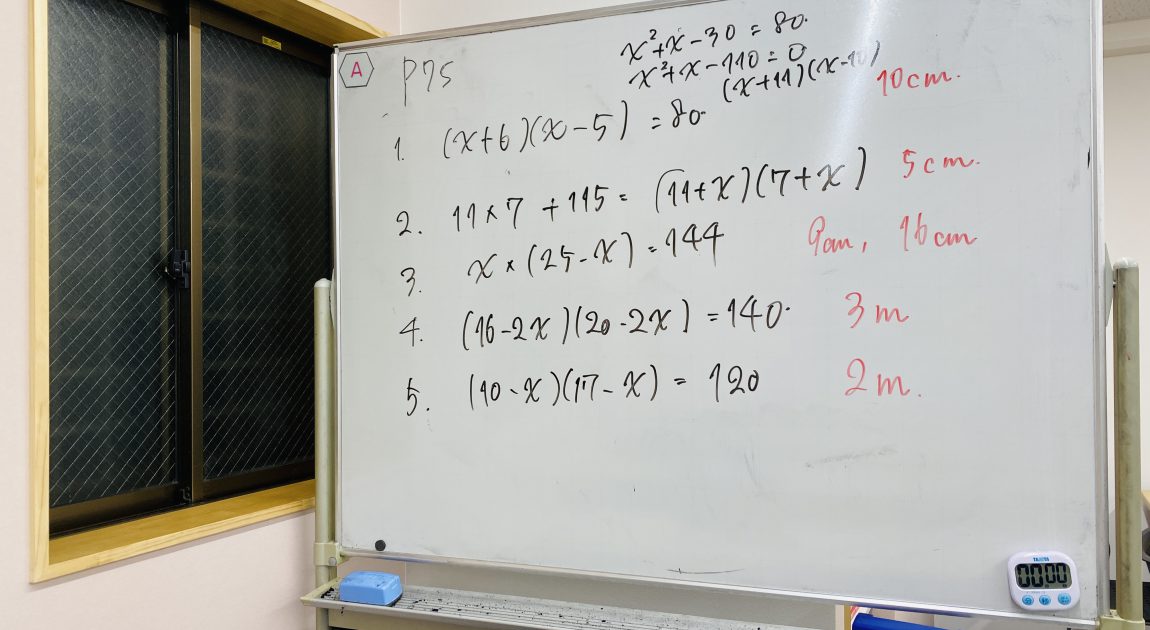 A
P75
x²+x-30=80.
x²+x-110=0
(x+11)(x-10)
10cm.
1. (x+6)(x-5)=80.
2. 11×7+115=(11+x)(7+x) 5cm.
3. x×(25-x)=144 9cm, 16cm
4. (16-2x)(20-2x)=140. 3m
5. (10-x)(17-x)=120 2m.
00:00